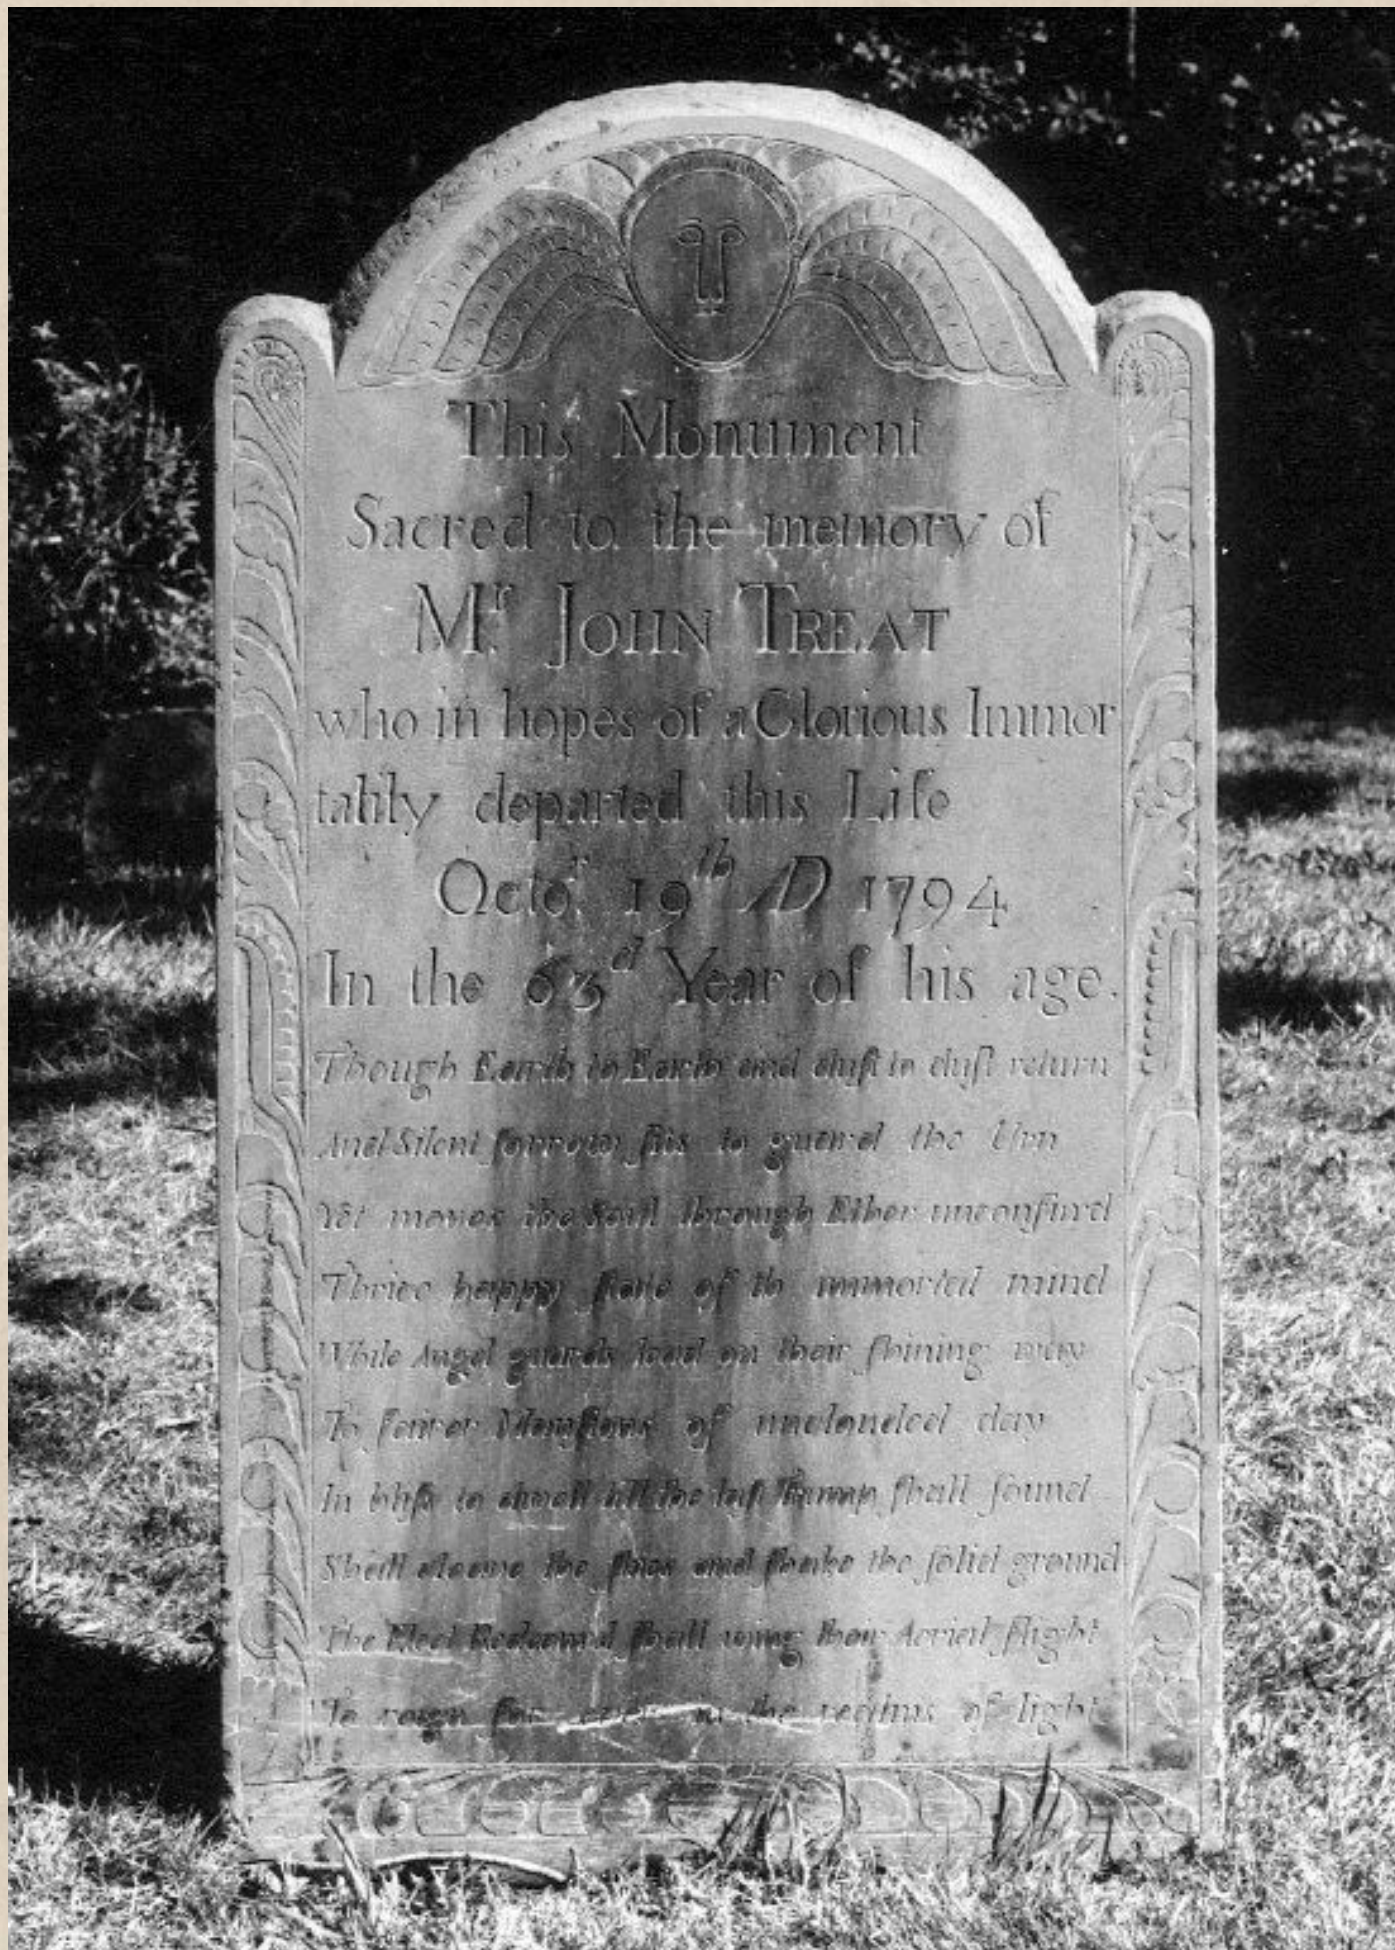 This Monument
Sacred to the memory of
Mr. JOHN TREAT
who in hopes of a Glorious Immor
tality departed this Life
Octo.r 19th AD 1794
In the 63d Year of his age.
Though Earth to Earth and duſt to duſt return
And Silent ſorrow ſits to guard the Urn
Yet moves the Soul through Ether unconfin'd
Thrice happy ſtate of th immortal mind
While Angel guards lead on their ſhining way
To fairer Manſions of unclouded day
In bliſs to dwell till the laſt Trump ſhall ſound
Shall the ſkies and ſhake the ſolid ground
The Elect Redeem'd ſhall wing their Aerial flight
To reign for ever in the regions of light